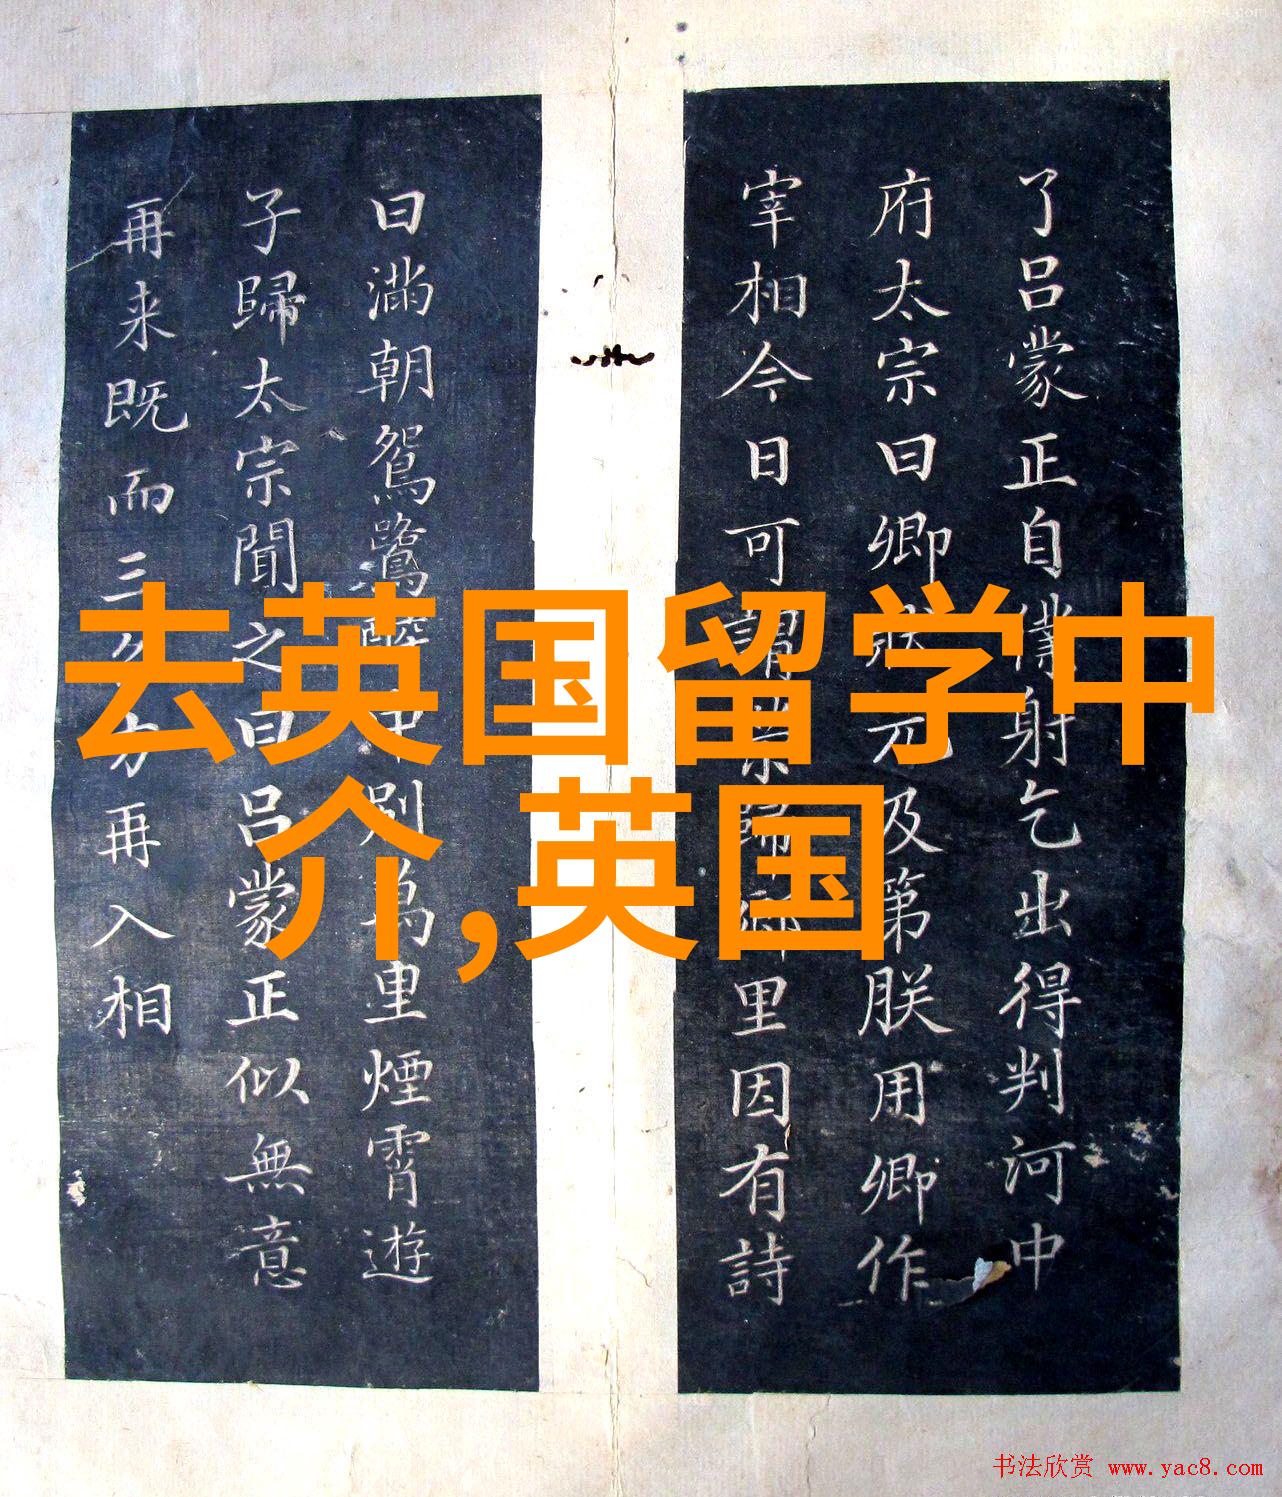 去英国留学中
介,英国
了吕蒙正自僕射乞出得判河中
府太宗曰卿狀元及第朕用卿作
宰相今日可謂榮歸鄉里因有詩
曰滿朝鴛鷺醉中別萬里煙霄遊
子歸太宗聞之曰吕蒙正似無意
再来既而三方再入相
书法欣赏 www.yac8.com